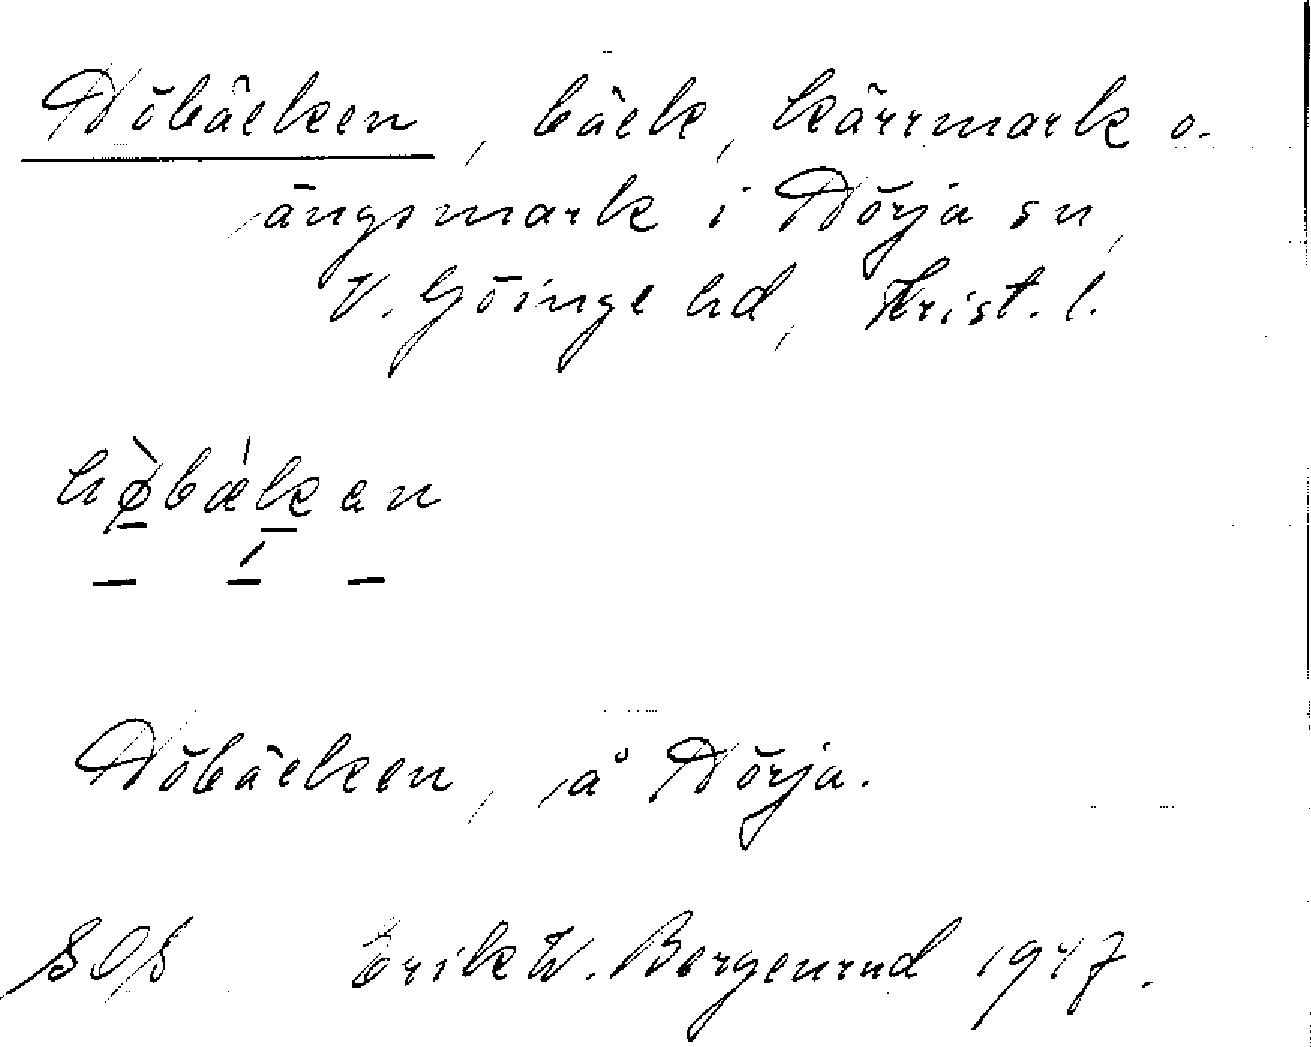 Höbäcken, bäck, kärrmark o.
ängsmark i Hörja sn,
V. Göinge hd, Krist. l.
hø̀bǽkan
Höbäcken, å Hörja.
SOS Erik W. Bergenrud 1947.